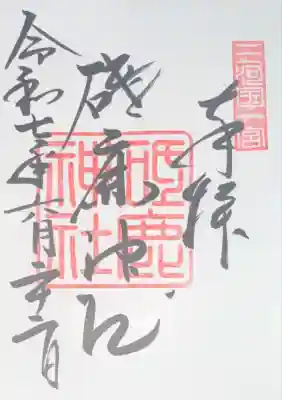 三河國一宮
奉拝
砥鹿神社
砥鹿神社
令和七年六月二十二日